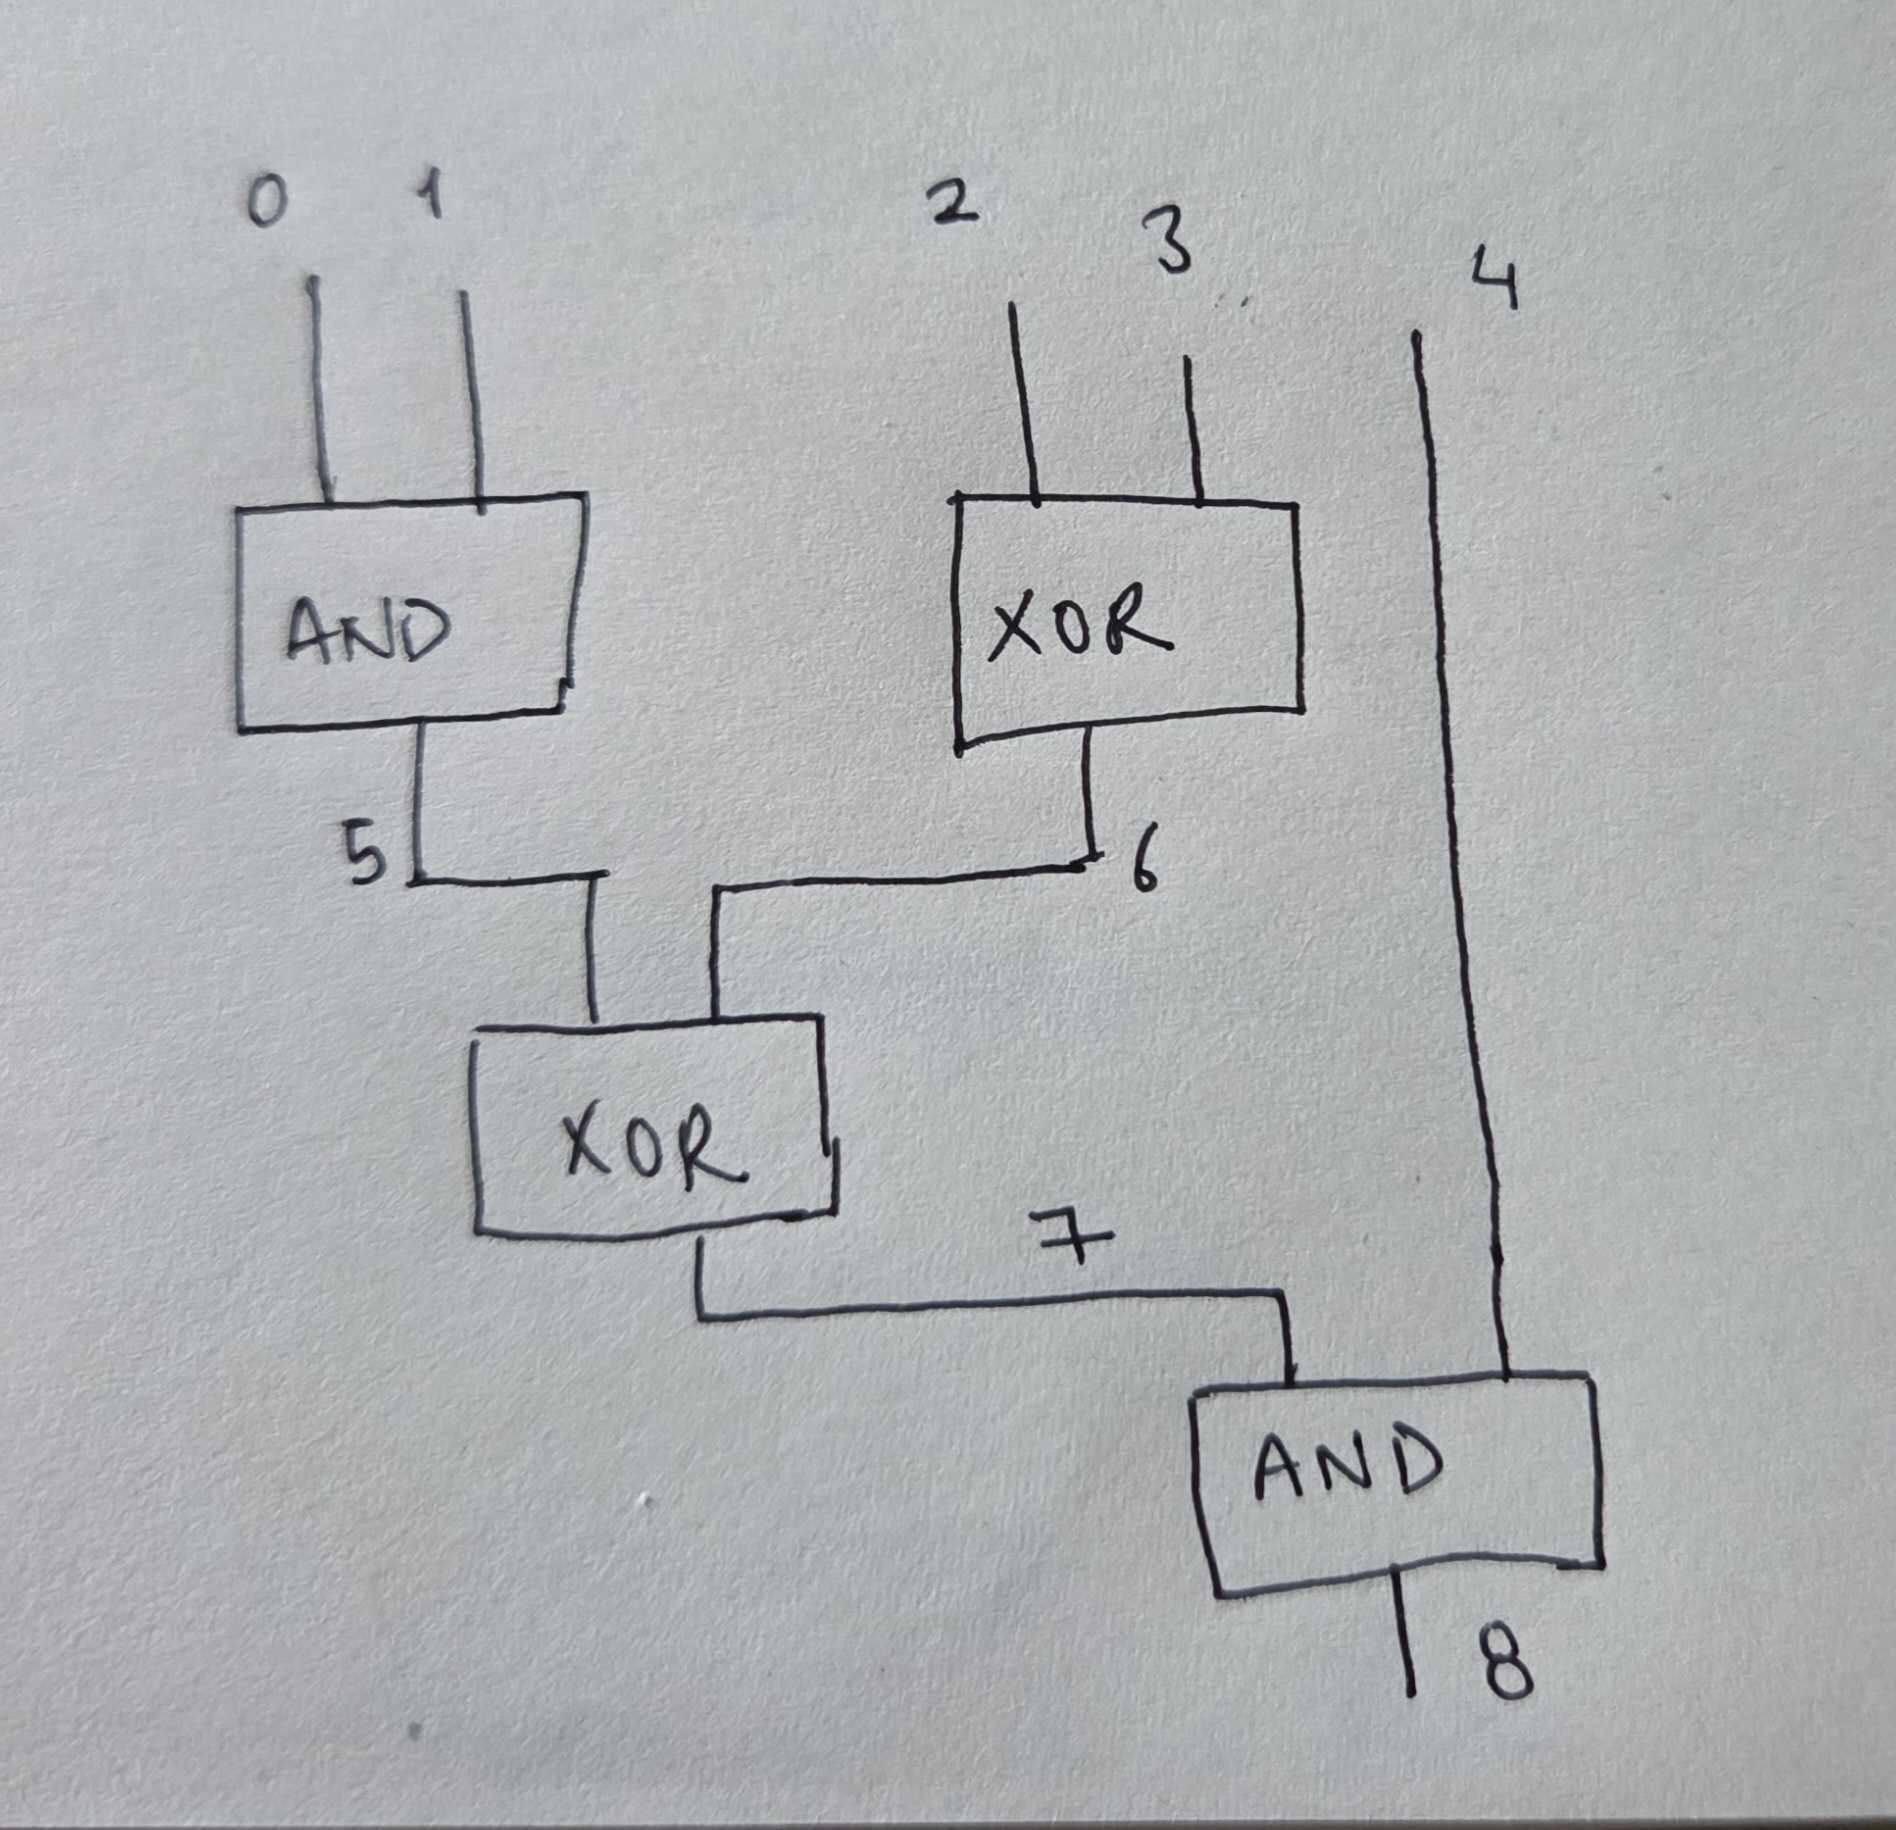 0 1 2 3 4
AND XOR
5 6
XOR
7
AND
8